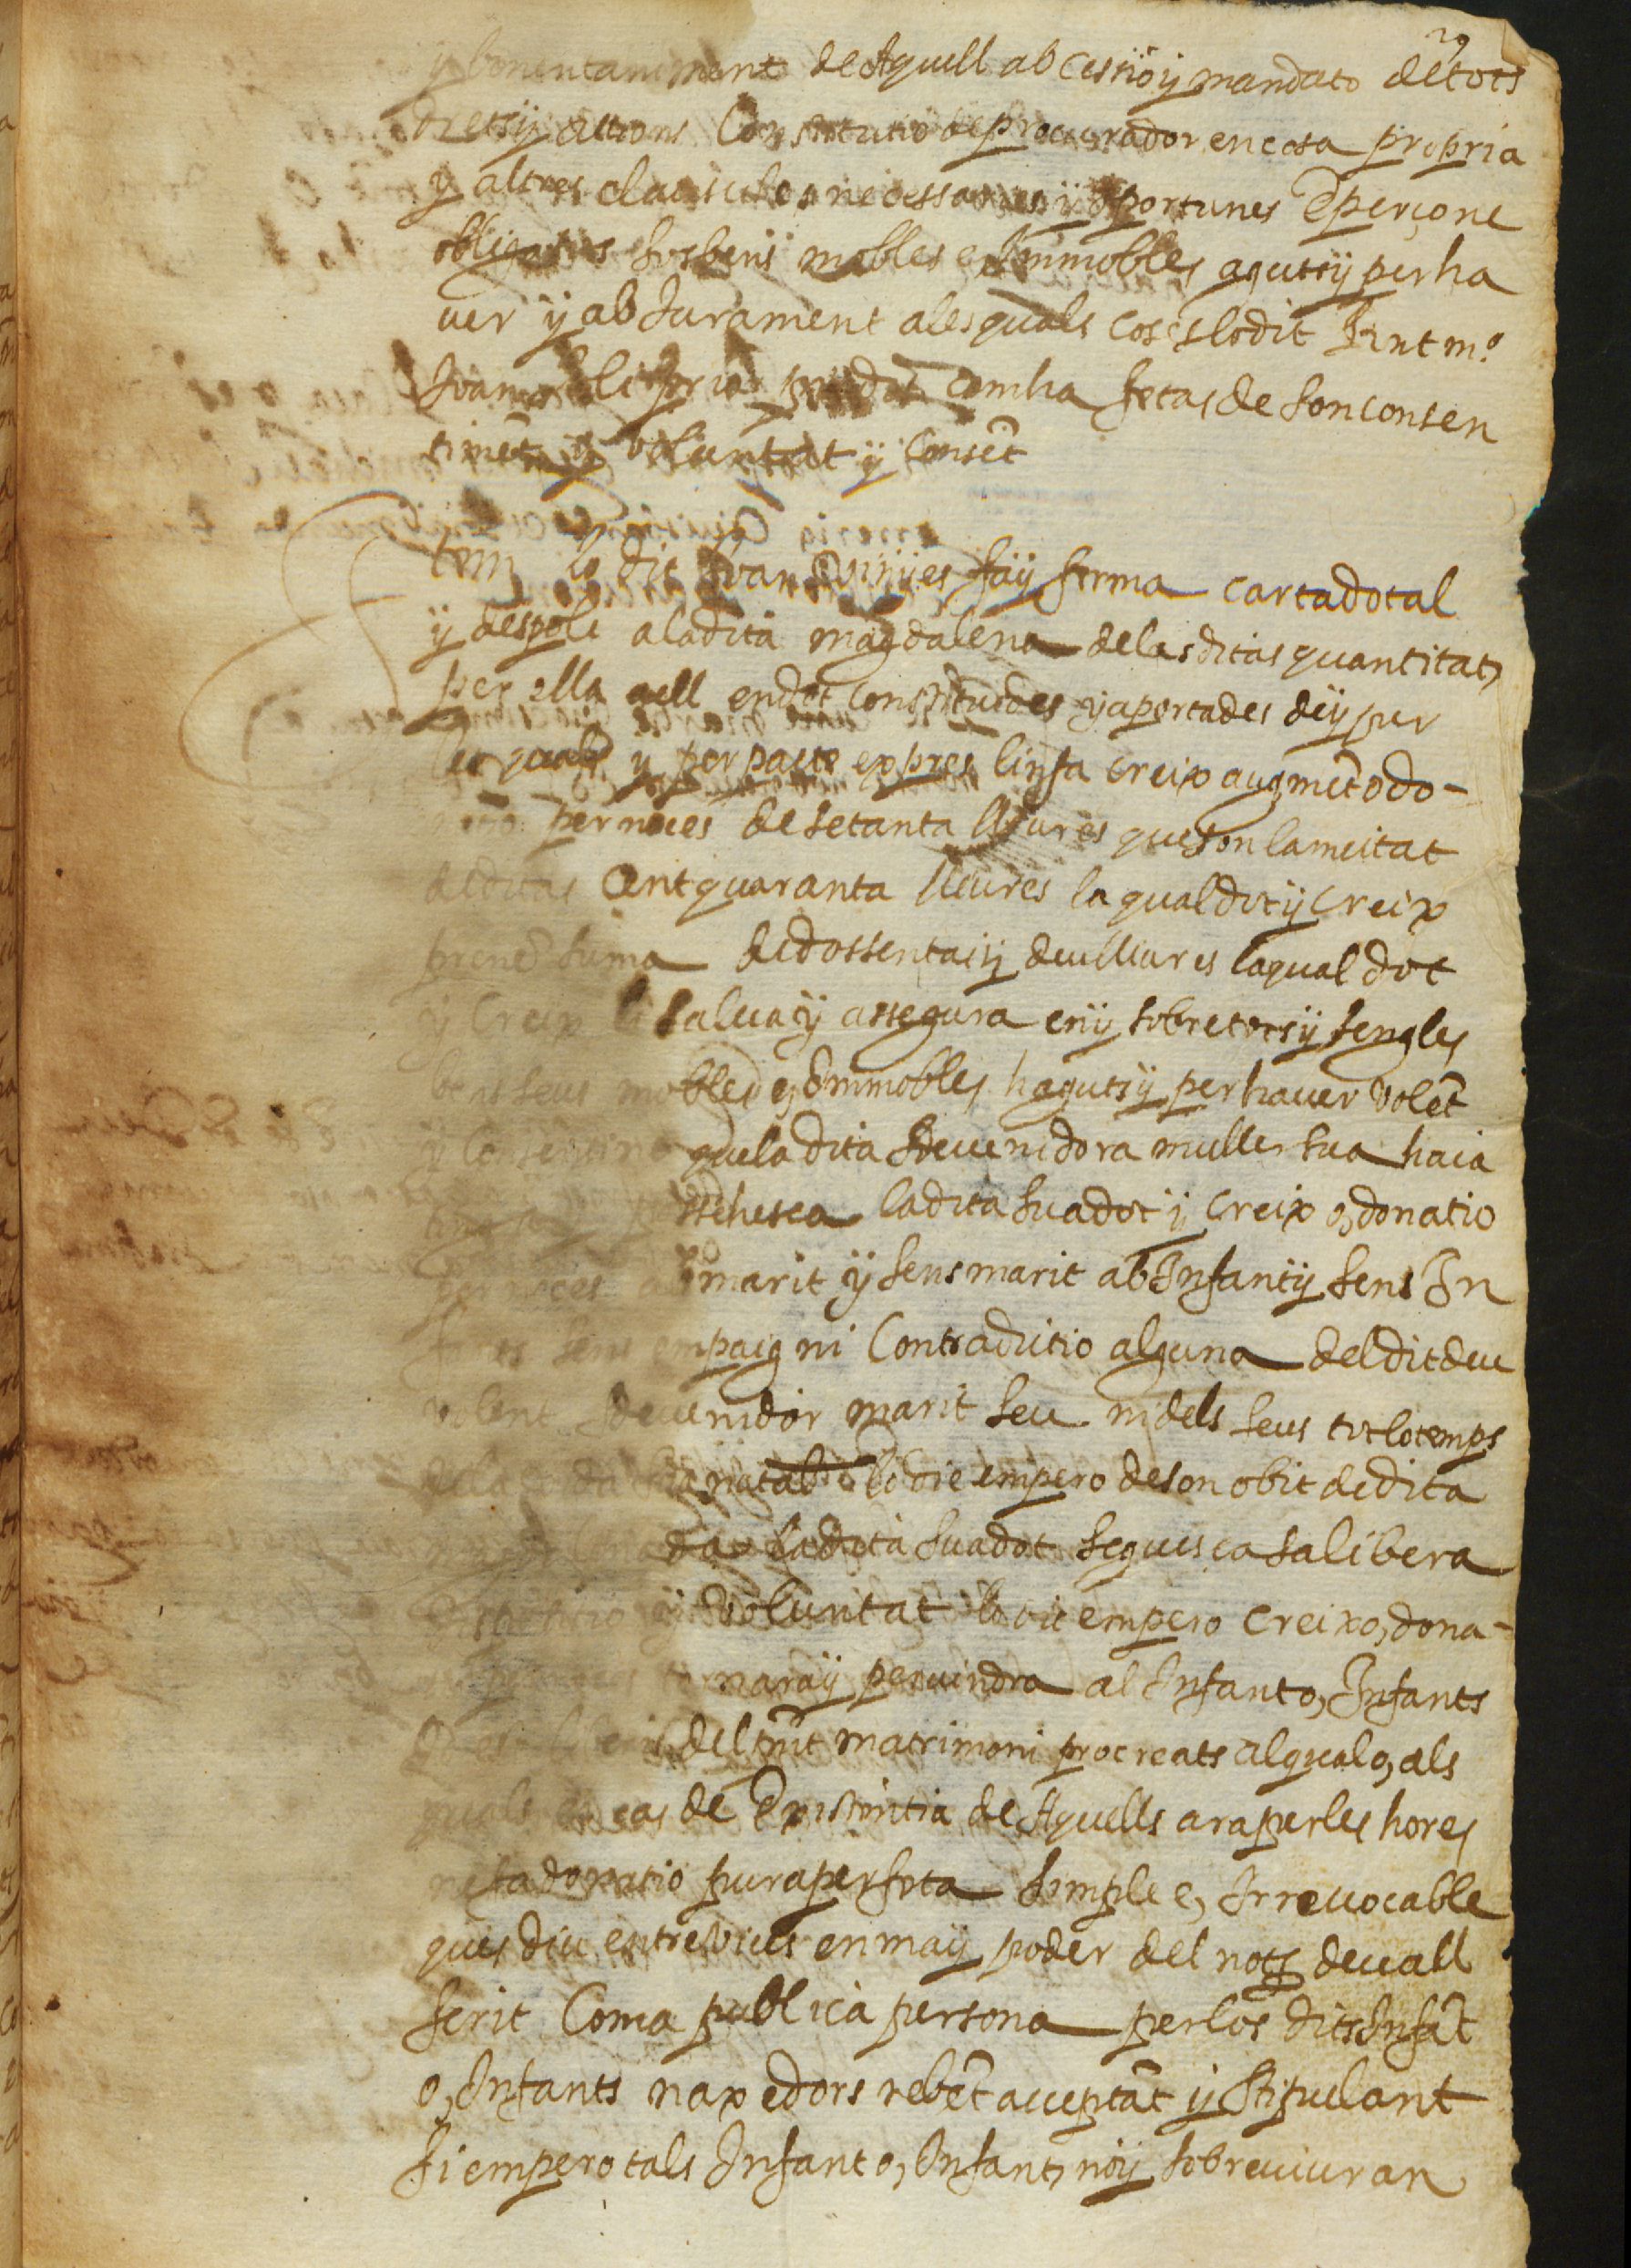 29
de Aquell ab cessio y mandato de tots
drets y actions Constitutio de procurador en cosa propria
y altres clausules necessaries y oportunes E per ço ne
obliga sos bens mobles e, Immobles aguts y per ha
uer y ab Jurament a les quals coses lo dit
com ha fetas de son consen
timēt y voluntat y consēt
Item lo dit Joan Vinyes fa y ferma carta dotal
y despoli a la dita magdalena de las ditas quantitats
per ella a ell en dot constituides y aportades de y per
les quals y per pacte expres li nfa creix augmēt o do-
natio per noces de setanta lliures que son la meitat
de ditas Cent quaranta lliures la qual dot y Creix
prenē suma de dossentas y deu lliures la qual dot
y Creix li salua y assegura en y sobre tots y sengles
bens seus mobles e, Immobles haguts y per hauer volēt
y consentint que la dita sdeuenidora muller sua haia
tinga y possehesca la dita sua dot y Creix o, donatio
per noces ab marit y sens marit ab Infants y sens In
fants sens empaig ni Contradictio alguna del dit deu
volent sdeuenidor marit seu ni dels seus tot lo temps
de la vida sua natal lo die empero de son obit de dita
la dita sua dot seguesca sa libera
dispositio y voluntat lo dit empero creix o, dona-
tio per noces tornara y peruindra al Infant o, Infants
del pnt matrimoni procreats al qual o, als
quals en cas de Existentia de Aquells ara per les hores
ne fa donatio pura perfeta simple e, Irreuocable
ques diu entre vius en ma y poder del nots deuall
scrit Com a publica persona per los dits Infāt
o, Infants naxedors rebēt acceptāt y stipulant
si empero tals Infant o, Infants noy sobreuiuran